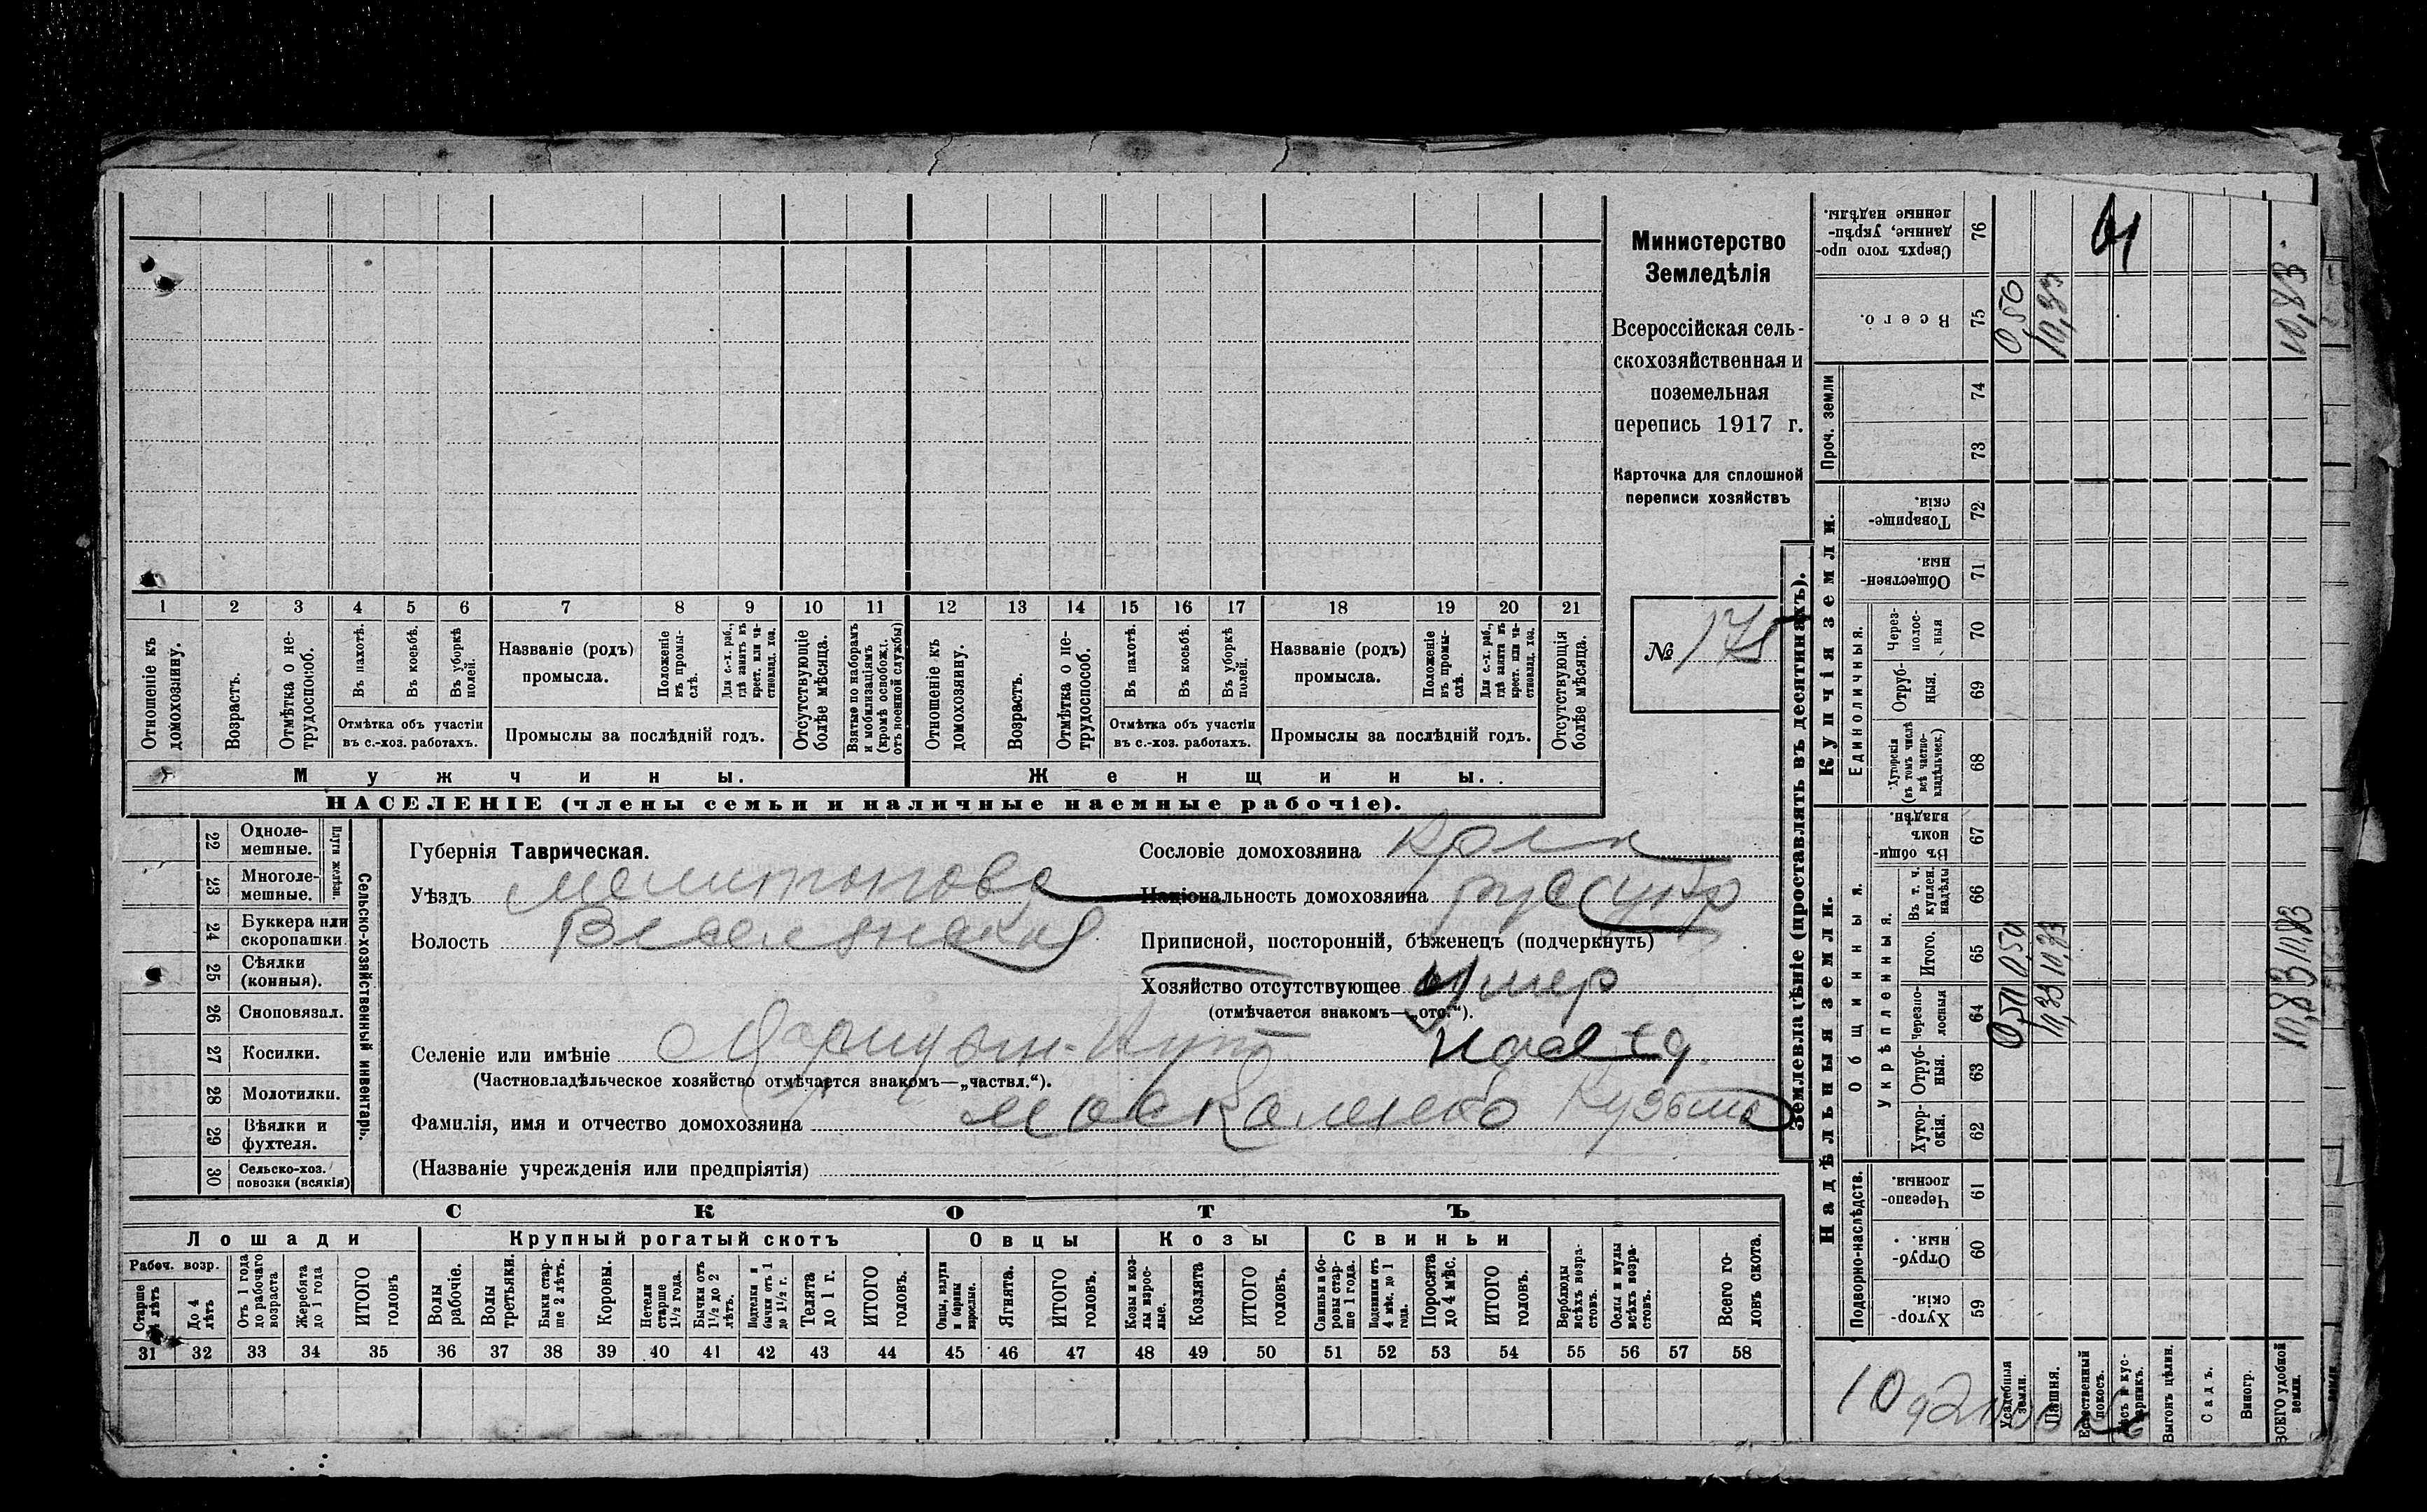 Министерство
Земледѣлія
Всероссійская сель-
скохозяйственная и
поземельная
перепись 1917 г.
Карточка для сплошной
переписи хозяйствъ
№ 175
1 2 3 4 5 6 7 8 9 10 11 12 13 14 15 16 17 18 19 20 21
Отношеніе къ домохозяину.
Возрастъ.
Отмѣтка о не-
трудоспособ.
Въ пахотѣ.
Въ косьбѣ.
Въ уборкѣ
полей.
Отмѣтка объ участіи
въ с.-хоз. работахъ.
Названіе (родъ)
промысла.
Положеніе
въ промы-
слѣ.
Для с.-х. раб.,
гдѣ занятъ въ
крест. или ча-
стновлад. хоз.
Промыслы за послѣдній годъ.
Отсутствующіе
болѣе мѣсяца.
Взятые по наборамъ
и мобилизаціямъ
(кромѣ освобожд.
отъ военной службы)
Отношеніе къ
домохозяину.
Возрастъ.
Отмѣтка о не-
трудоспособ.
Въ пахотѣ.
Въ косьбѣ.
Въ уборкѣ
полей.
Отмѣтка объ участіи
въ с.-хоз. работахъ.
Названіе (родъ)
промысла.
Положеніе
въ промы-
слѣ.
Для с.-х. раб.,
гдѣ занята въ
крест. или ча-
стновлад. хоз.
Промыслы за послѣдній годъ.
Отсутствующія
болѣе мѣсяца.
Мужчины.
Женщины.
НАСЕЛЕНІЕ (члены семьи и наличные наемные рабочіе).
22 Одноле-
мешные.
23 Многоле-
мешные.
Плуги желѣзн.
24 Буккера или
скоропашки
25 Сѣялки
(конныя).
26 Сноповязал.
27 Косилки.
28 Молотилки.
29 Вѣялки и
фухтеля.
30 Сельско-хоз.
повозки (всякія)
Сельско-хозяйственный инвентарь.
Губернія Таврическая.
Уѣздъ Мелитопов
Волость Веселянская
Селеніе или имѣніе
(Частновладѣльческое хозяйство отмѣчается знакомъ—„частвл.“).
Фамилія, имя и отчество домохозяина Москаленко Кузьма
(Названіе учрежденія или предпріятія)
Сословіе домохозяина
Національность домохозяина
Приписной, посторонній, бѣженецъ (подчеркнуть)
Хозяйство отсутствующее умер
(отмѣчается знакомъ—„отс.“).
СКОТЪ
Лошади
Крупный рогатый скотъ
Овцы
Козы
Свиньи
Рабоч. возр.
Старше
4 лѣтъ
До 4
лѣтъ
Отъ 1 года
до рабочаго
возраста
Жеребята
до 1 года
ИТОГО
головъ
Волы
рабочіе.
Волы
третьяки.
Быки стар-
ше 2 лѣтъ.
Коровы.
Нетели
старше
1½ года.
Бычки отъ
1½ до 2
лѣтъ.
Подтелки и
бычки отъ 1
до 1½ г.
Телята
до 1 г.
ИТОГО
головъ.
Овцы, валухи
и бараны
взрослые.
Ягнята.
ИТОГО
головъ.
Козы и коз-
лы взрос-
лые.
Козлята
ИТОГО
головъ.
Свиньи и бо-
ровы стар-
ше 1 года.
Подсвинки отъ
4 мѣс. до 1
года.
Поросята
до 4 мѣс.
ИТОГО
головъ.
Верблюды
всѣхъ возра-
стовъ.
Ослы и мулы
всѣхъ возра-
стовъ.
Всего го-
ловъ скота.
31 32 33 34 35 36 37 38 39 40 41 42 43 44 45 46 47 48 49 50 51 52 53 54 55 56 57 58
Землевладѣніе (проставлять въ десятинахъ).
Надѣльныя земли.
Купчія земли.
Проч. земли
Подворно-наслѣдств.
Общинныя.
Укрѣпленныя.
Единоличныя.
Сверхъ того про-
данные, укрѣп-
ленные надѣлы.
76
Всего.
75
0,50
10,33
10,83
74
73
Товарище-
скія.
72
Обществен-
ныя.
71
Через-
полос-
ныя
70
Отруб-
ныя.
69
Хуторскія
(въ томъ числѣ
всѣ частно-
владѣльческ.)
68
Въ общи-
номъ
владѣн.
67
Въ т. ч.
куплен.
надѣлы
66
Итого.
65
0,50
10,33
10,83
Черезпо-
лосныя
64
0,50
10,33
10,83
Отруб-
ныя.
63
Хутор-
скія.
62
Черезпо-
лосныя.
61
Отруб-
ныя.
60
Хутор-
скія.
59
Усадебныя
земли.
Пашня.
Естественный
покосъ.
Лѣсъ и кус-
тарникъ.
Выгонъ цѣлин.
Садъ.
Виногр.
ВСЕГО удобной
земли.